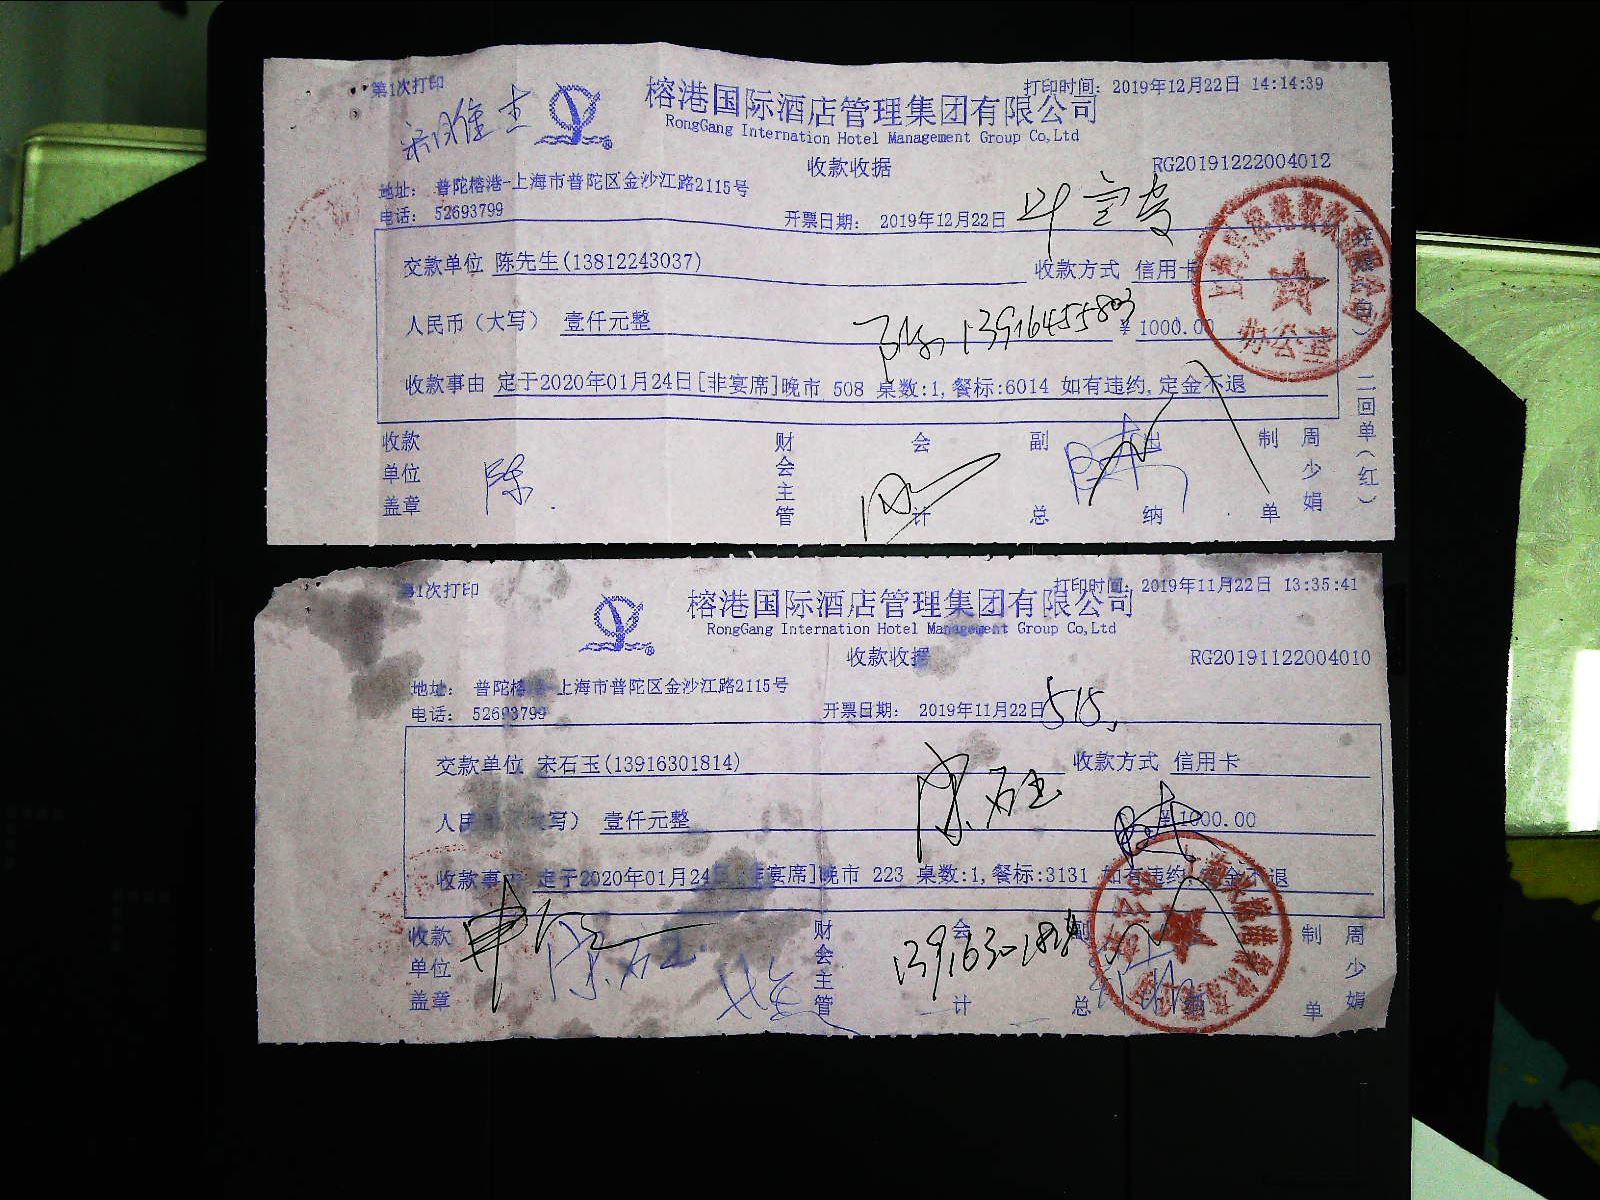 第1次打印
打印时间: 2019年12月22日 14:14:39
榕港国际酒店管理集团有限公司
RongGang Internation Hotel Management Group Co,Ltd
收款收据
RG20191222004012
地址: 普陀榕港-上海市普陀区金沙江路2115号
电话: 52693799
开票日期: 2019年12月22日
交款单位 陈先生(13812243037)
收款方式 信用卡
人民币(大写) 壹仟元整
13916455803
¥ 1000.00
收款事由 定于2020年01月24日[非宴席]晚市 508 桌数:1,餐标:6014 如有违约,定金不退
收款单位盖章
陈
财会主管
会计
副总
出纳
制单
周少娟
二回单(红)
办公室
第1次打印
打印时间: 2019年11月22日 13:35:41
榕港国际酒店管理集团有限公司
RongGang Internation Hotel Management Group Co,Ltd
收款收据
RG20191122004010
地址: 普陀榕港-上海市普陀区金沙江路2115号
电话: 52693799
开票日期: 2019年11月22日
515
交款单位 宋石玉(13916301814)
收款方式 信用卡
人民币(大写) 壹仟元整
¥1000.00
收款事由 定于2020年01月24日[非宴席]晚市 223 桌数:1,餐标:3131 如有违约,定金不退
收款单位盖章
财会主管
会计
副总
制单
周少娟